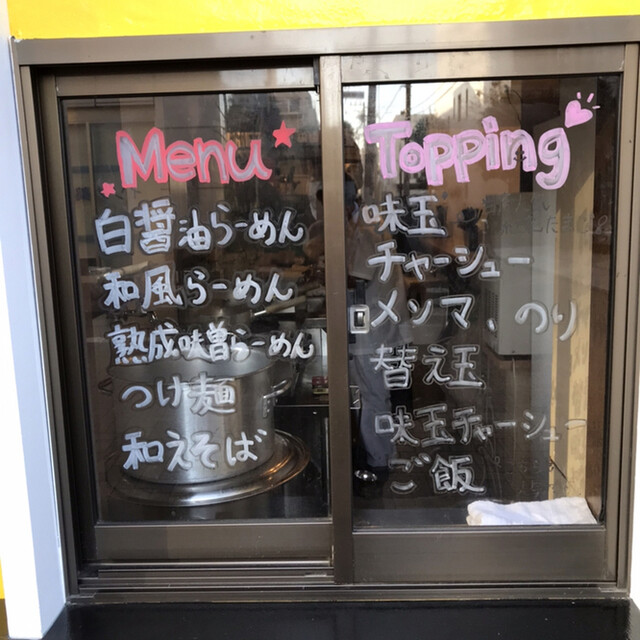 Menu
白醤油らーめん
和風らーめん
熟成味噌らーめん
つけ麺
和えそば
Topping
味玉
チャーシュー
メンマ、のり
替え玉
味玉チャーシュー
ご飯